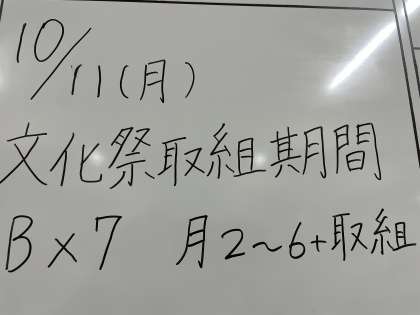 10/11(月)
文化祭取組期間
B×7 月2~6+取組